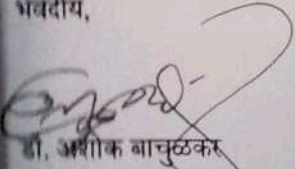 भवदीय,
डॉ. अशोक बाचुळकर